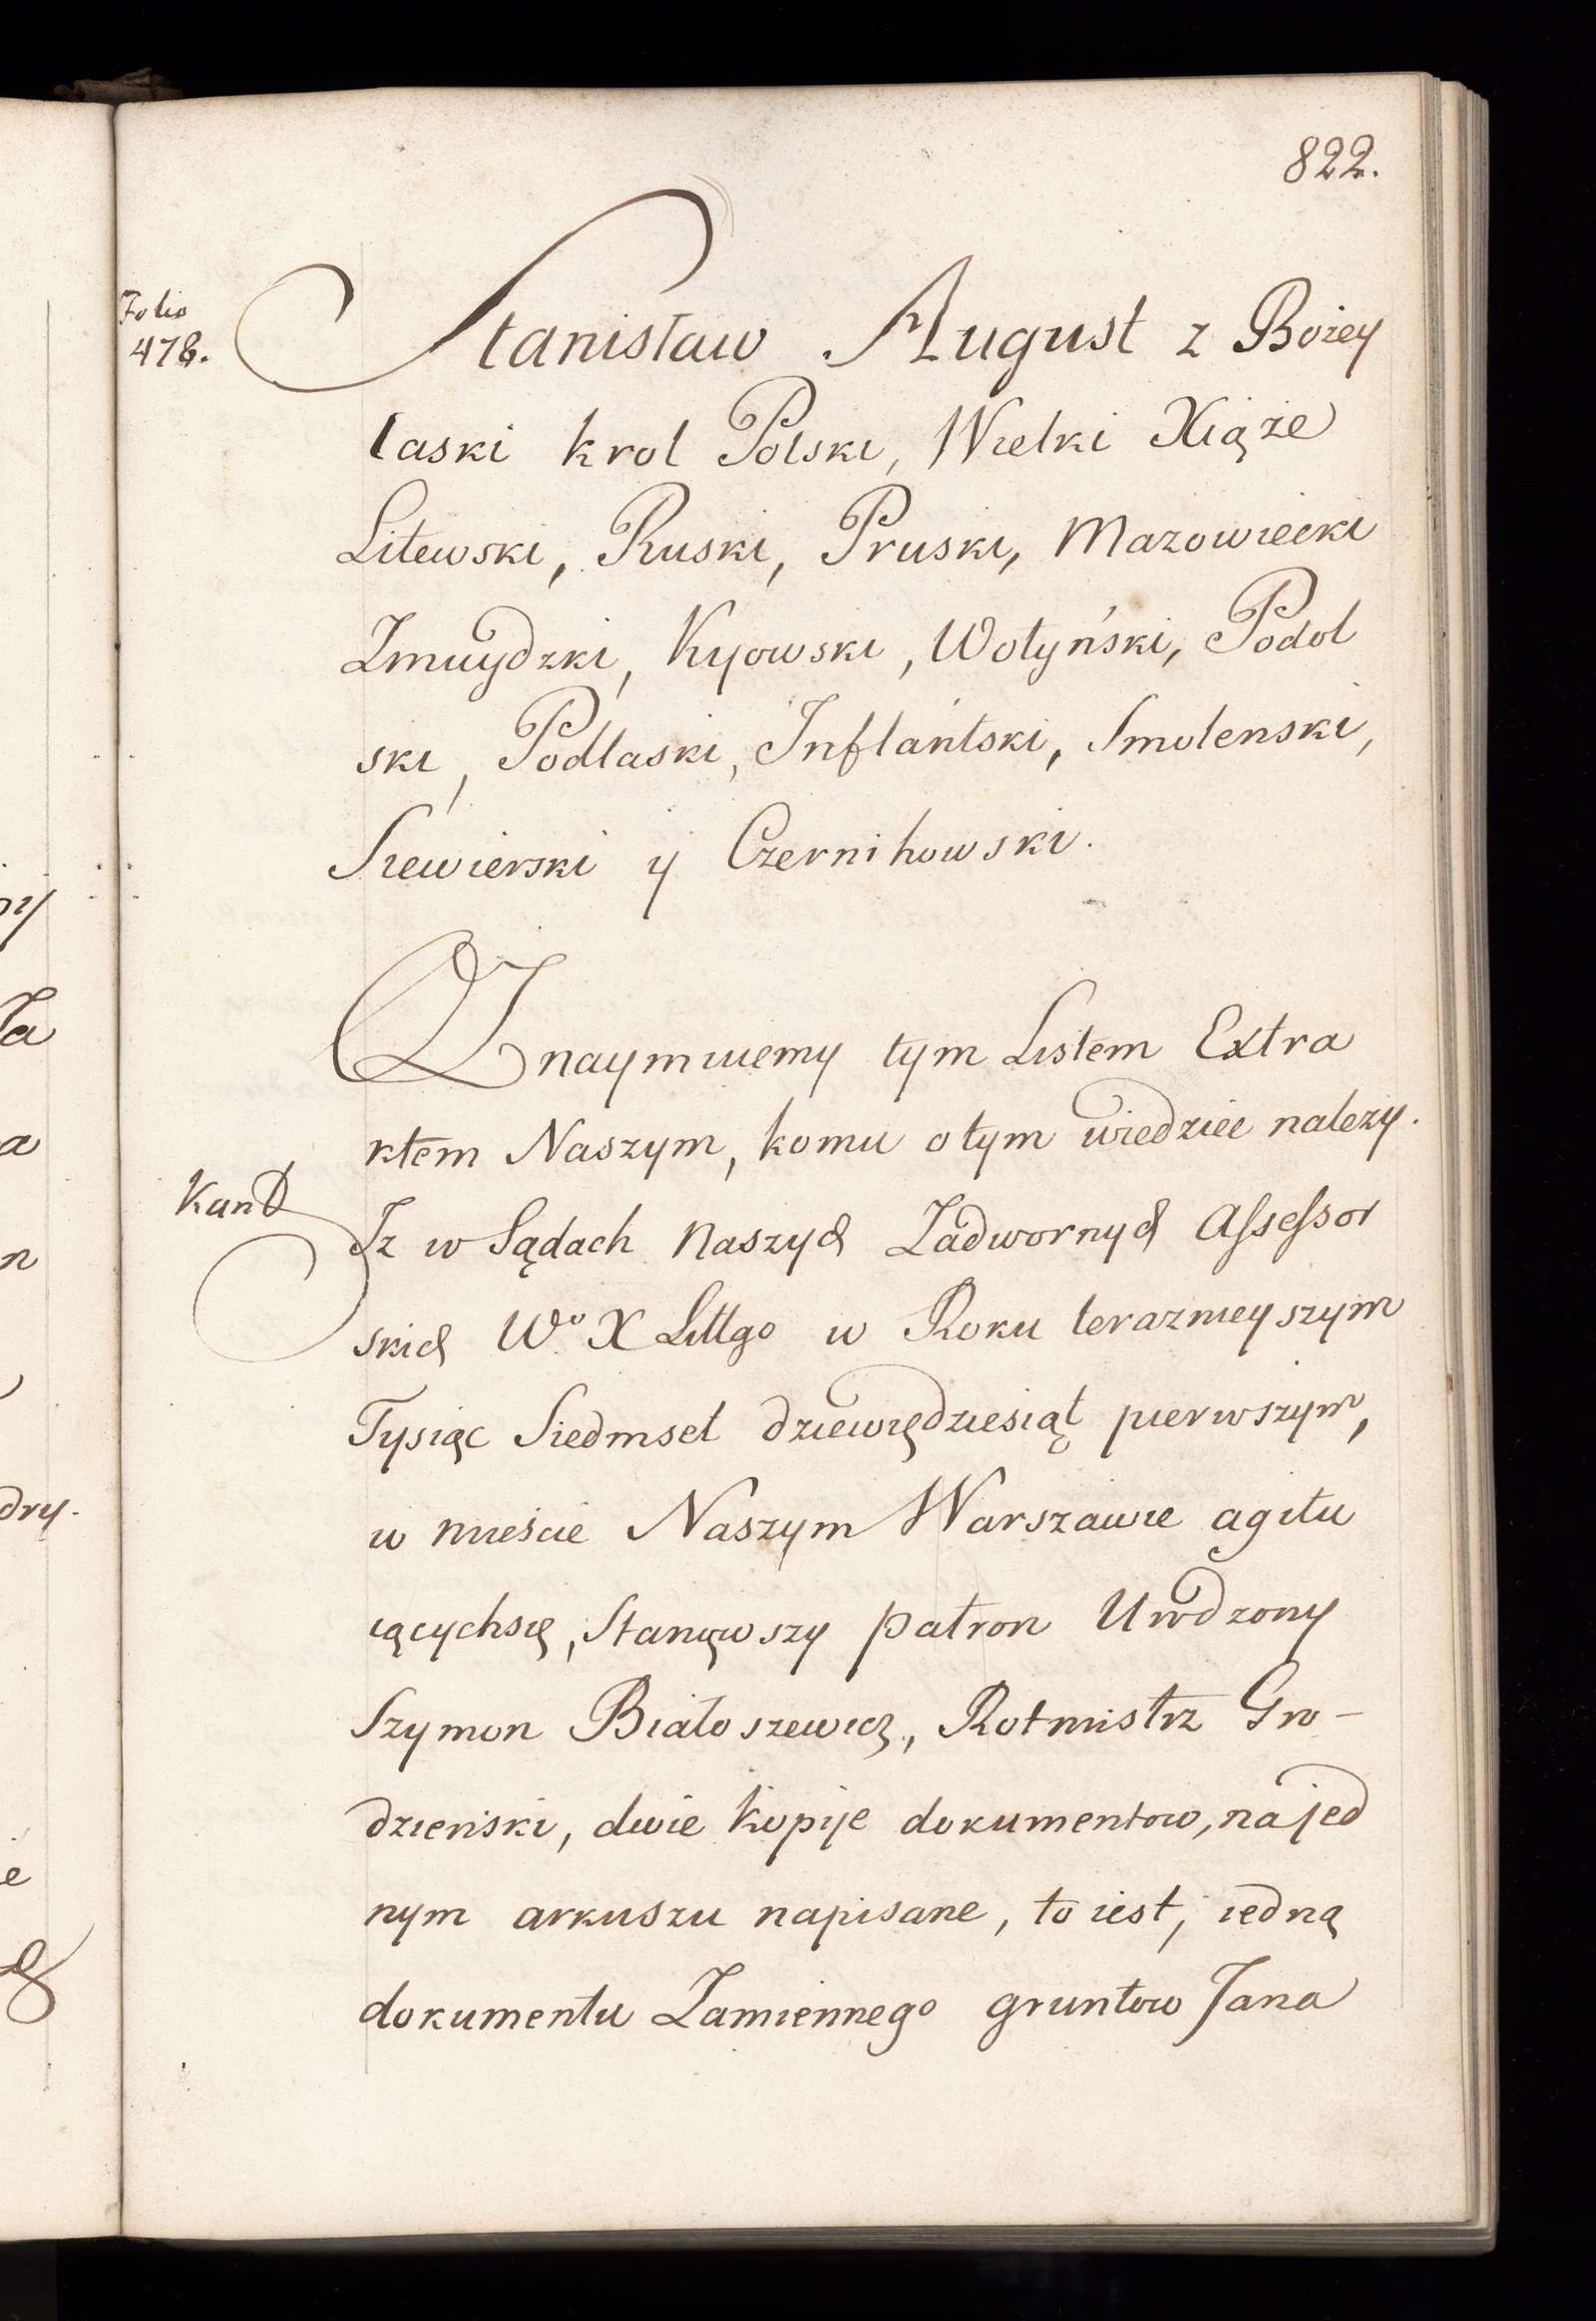 822.
Folio
478.
Stanisław August z Bożey
łaski krol Polski, Wielki Xiąże
Litewski, Ruski, Pruski, Mazowiecki
Zmuydzki, Kyowski, Wołyński, Podol
ski, Podlaski, Inflantski, Smolenski,
Siewierski y Czernihowski.
Oznaymuiemy tym Listem Extra
ktem Naszym, komu o tym wiedziec nalezy.
Kand
Iz w Sądach Naszych Zadwornych Assessor
skich Wo X Littgo w Roku teraznieyszym
Tysiąc Siedmset dziewiędziesiąt pierwszym,
w mieście Naszym Warszawie agitu
iącychsię, Stanąwszy patron Urodzony
Szymon Białoszewicz, Rotmistrz Gro-
dzieński, dwie kopije dokumentow, na jed
nym arkuszu napisane, to iest, iedną
dokumentu Zamiennego gruntow Jana